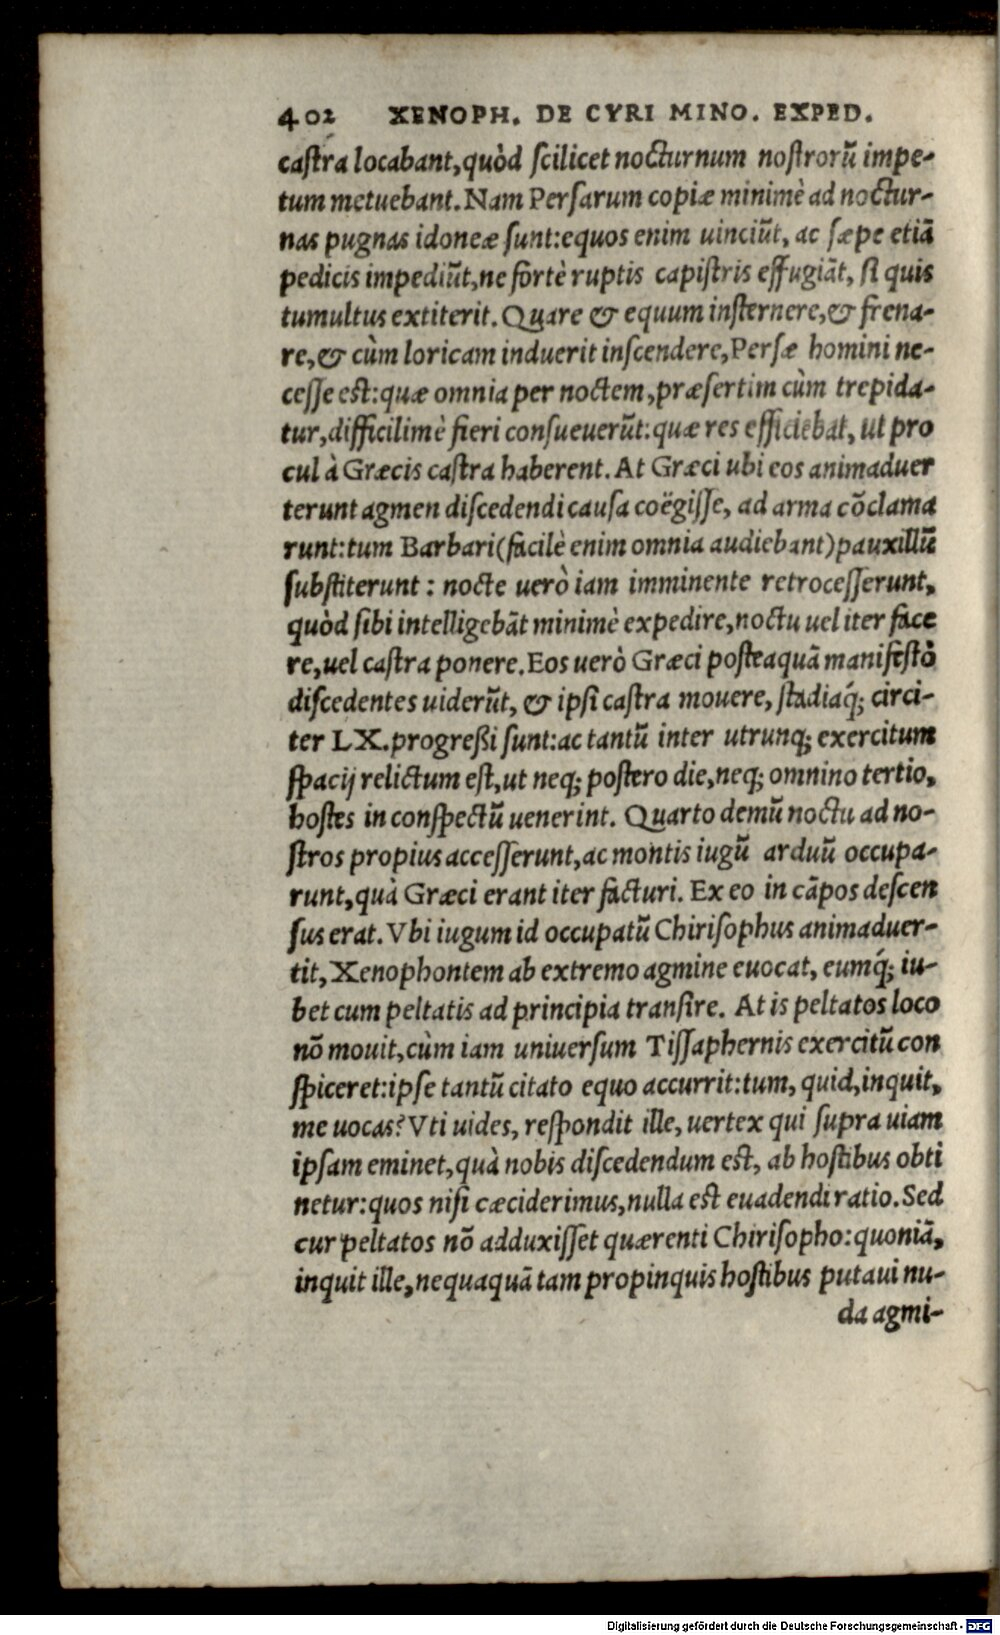 402 XENOPH. DE CYRI MINO. EXPED.
castra locabant, quòd scilicet nocturnum nostrorũ impe-
tum metuebant. Nam Persarum copiæ minimè ad noctur-
nas pugnas idoneæ sunt: equos enim uinciũt, ac sæpe etiã
pedicis impediũt, ne fortè ruptis capistris effugiãt, si quis
tumultus extiterit. Quare & equum insternere, & frena-
re, & cùm loricam induerit inscendere, Persæ homini ne-
cesse est: quæ omnia per noctem, præsertim cùm trepida-
tur, difficilimè fieri consueuerũt: quæ res efficiebat, ut pro
cul à Græcis castra haberent. At Græci ubi eos animaduer
terunt agmen discedendi causa coëgisse, ad arma cõclama
runt: tum Barbari (facilè enim omnia audiebant) pauxillũ
substiterunt: nocte uerò iam imminente retrocesserunt,
quòd sibi intelligebãt minimè expedire, noctu uel iter face
re, uel castra ponere. Eos uerò Græci posteaquã manifestò
discedentes uiderũt, & ipsi castra mouere, stadiaq́; circi-
ter LX. progreßi sunt: ac tantũ inter utrunq; exercitum
spacij relictum est, ut neq; postero die, neq; omnino tertio,
hostes in conspectũ uenerint. Quarto demũ noctu ad no-
stros propius accesserunt, ac montis iugũ arduũ occupa-
runt, quà Græci erant iter facturi. Ex eo in cãpos descen
sus erat. Vbi iugum id occupatũ Chirisophus animaduer-
tit, Xenophontem ab extremo agmine euocat, eumq́; iu-
bet cum peltatis ad principia transire. At is peltatos loco
nõ mouit, cùm iam uniuersum Tissaphernis exercitũ con
spiceret: ipse tantũ citato equo accurrit: tum, quid, inquit,
me uocas? Vti uides, respondit ille, uertex qui supra uiam
ipsam eminet, quà nobis discedendum est, ab hostibus obti
netur: quos nisi cæciderimus, nulla est euadendi ratio. Sed
cur peltatos nõ adduxisset quærenti Chirisopho: quoniã,
inquit ille, nequaquã tam propinquis hostibus putaui nu-
da agmi-
Digitalisierung gefördert durch die Deutsche Forschungsgemeinschaft - DFG